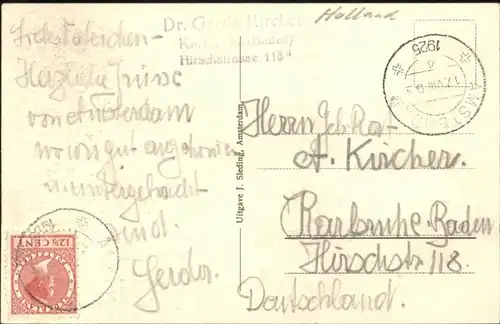 Holland
Dr. Gerda Kircher
Karlsruhe (Baden)
Hirschstrasse 118
Herzliche Grüsse
von Amsterdam
wo wir gut angekommen
u. untergebracht
sind.
Gerda.
Uitgave J. Sleding, Amsterdam
AMSTERDAM
17.VIII.9
1925
Herrn Geh. Rat
A. Kircher.
Karlsruhe Baden
Hirschstr. 118.
Deutschland.
12½ CENT